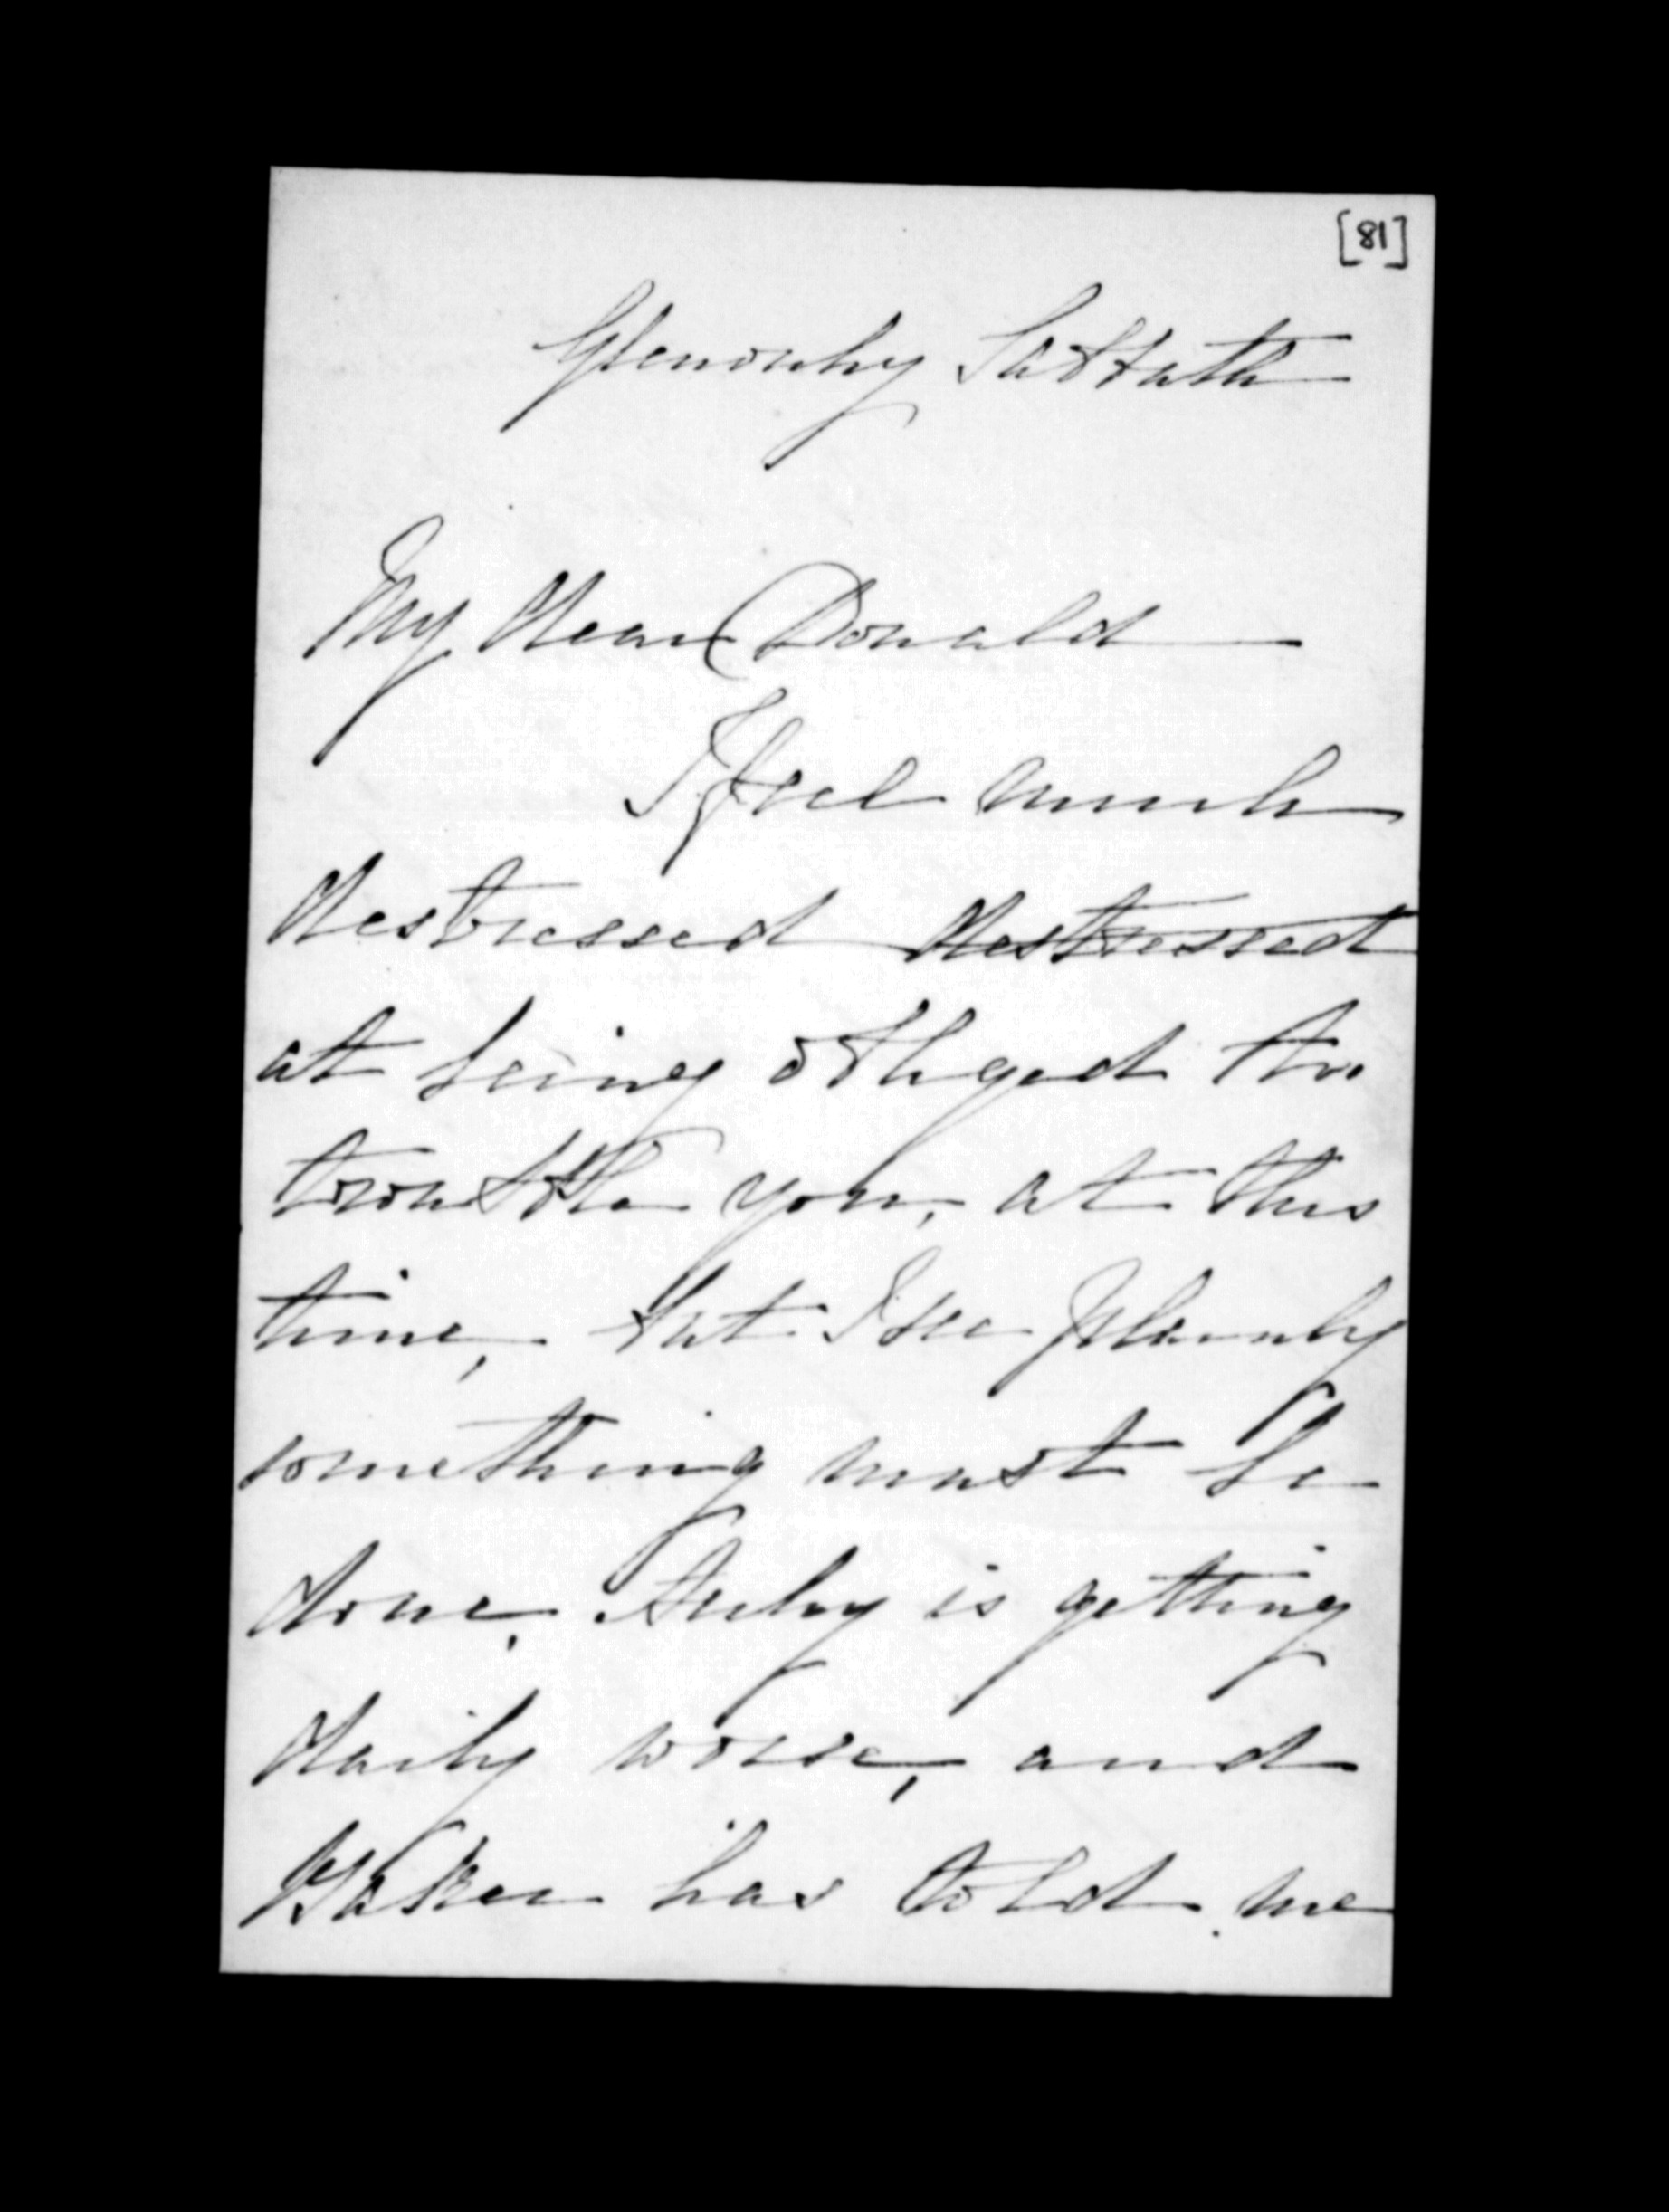 [81]
Glenorchy Sabbath
My dear Donald
I feel much
destressed destressed
at being obliged to
trouble you, at this
time, but I see plainly
something must be
done, Auley is getting
daily worse, and
Baker has told me